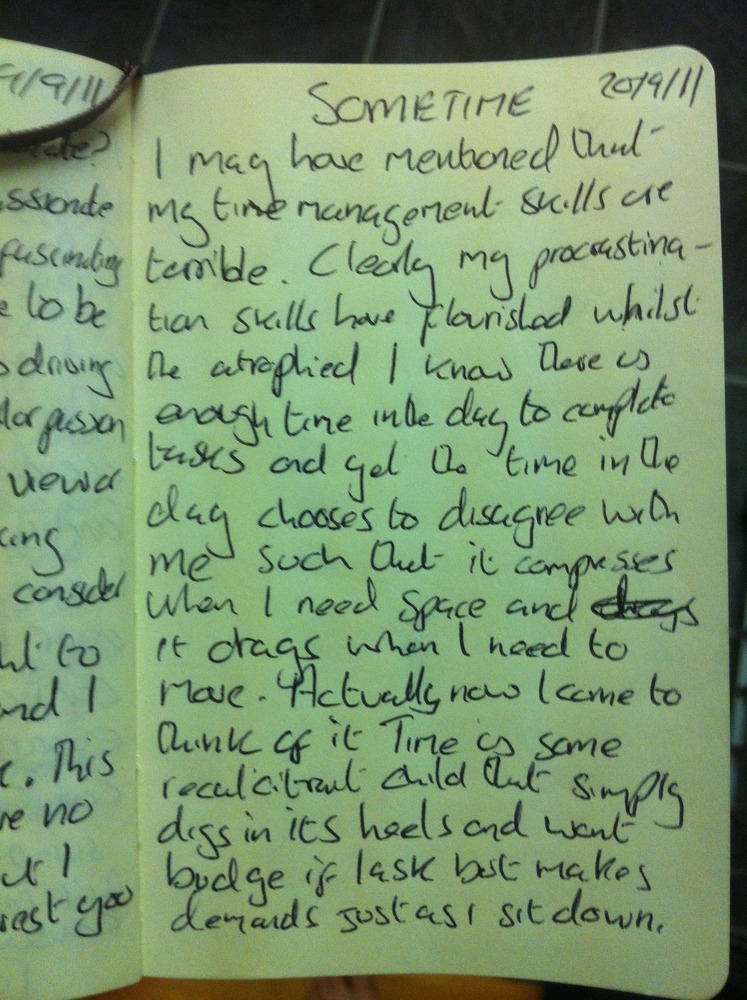 9/9/11
ate?
assionate
fascinating
e to be
o driving
passion
viewer
king
consider
to
and I
. This
re no
ut I
rest you
SOMETIME 20/9/11
I may have mentioned that
my time management skills are
terrible. Clearly my procrastina-
tion skills have flourished whilst
the atrophied I know there is
enough time in the day to complete
tasks and yet the time in the
day chooses to disagree with
me such that it compresses
when I need space and drags
it drags when I need to
move. Actually now I come to
think of it Time is some
recalcitrant child that simply
digs in its heels and wont
budge if I ask but makes
demands just as I sit down.